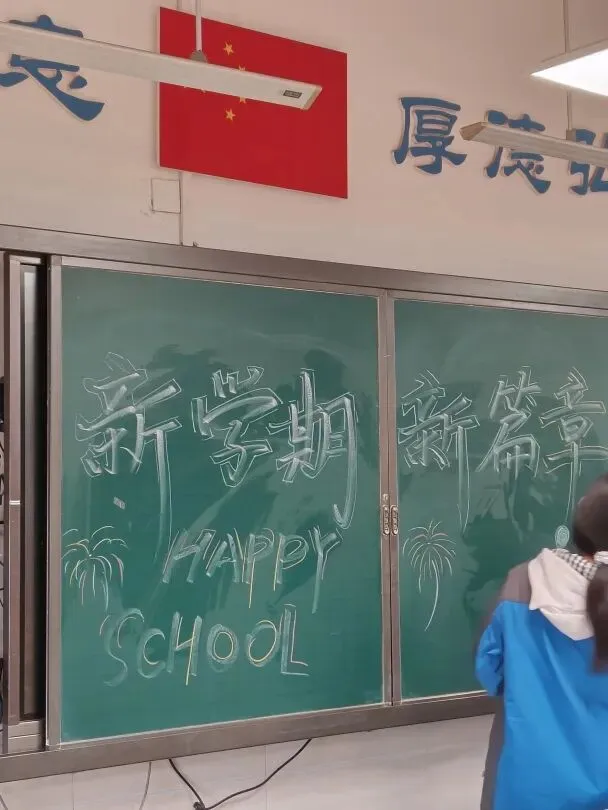 志
厚德弘
新学期 新篇章
HAPPY
SCHOOL